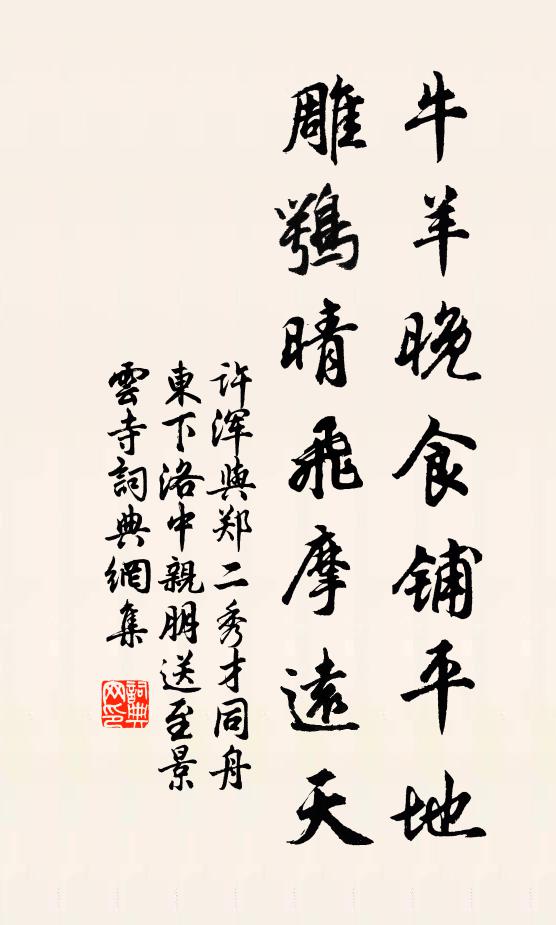 牛羊晚食鋪平地
雕鶚晴飛摩遠天
許渾與郑二秀才同舟
東下洛中親朋送至景
雲寺詞典網集
詞典
网印